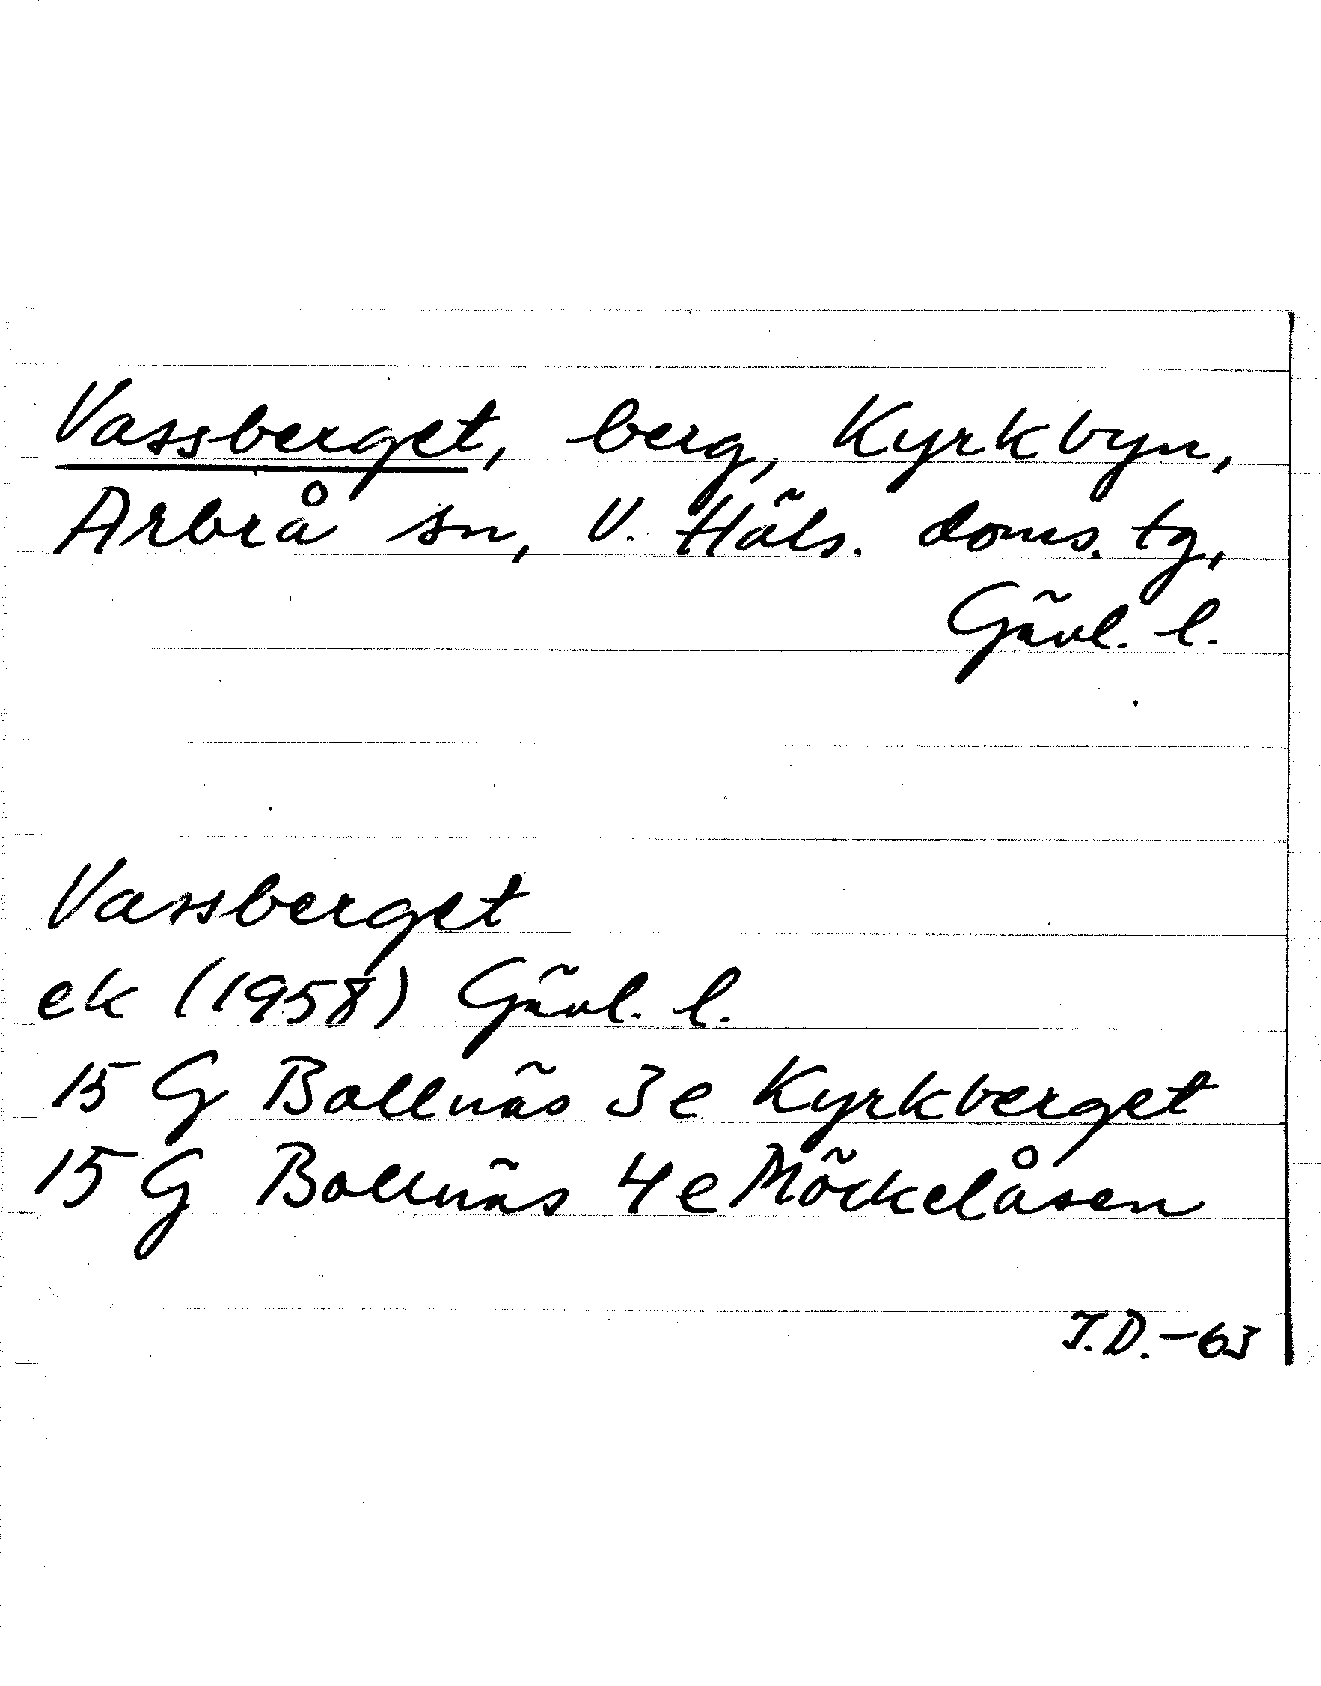 Vassberget, berg, Kyrkbyn,
Arbrå sn, V. Häls. doms. tg,
Gävl. l.
Vassberget
ek (1958) Gävl. l.
15 G Bollnäs 3e Kyrkberget
15 G Bollnäs 4e Möckelåsen
I.D.-63